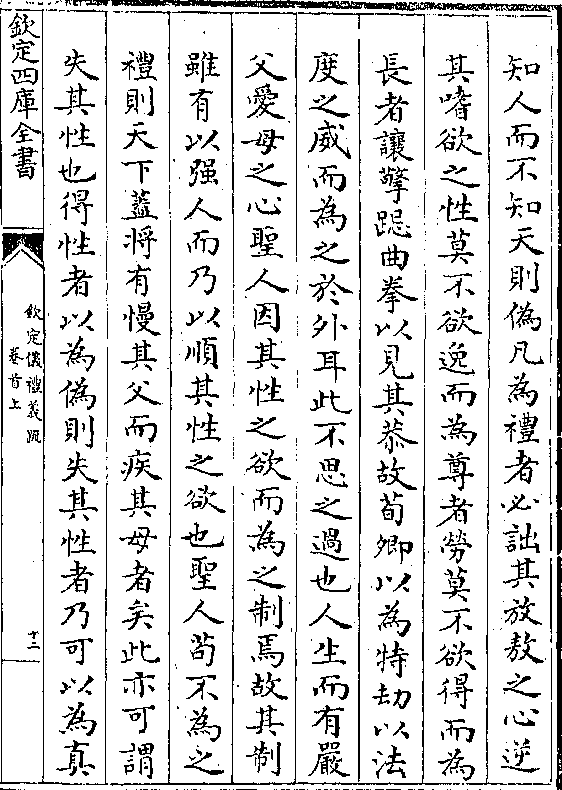 知人而不知天則偽凡為禮者必詘其放敖之心逆
其嗜欲之性莫不欲逸而為尊者勞莫不欲得而為
長者讓擎跽曲拳以見其恭故荀卿以為特劫以法
度之威而為之於外耳此不思之過也人生而有嚴
父愛母之心聖人因其性之欲而為之制焉故其制
雖有以强人而乃以順其性之欲也聖人苟不為之
禮則天下葢將有慢其父而疾其母者矣此亦可謂
失其性也得性者以為偽則失其性者乃可以為真
欽定四庫全書
欽定儀禮義疏
卷首上
十二